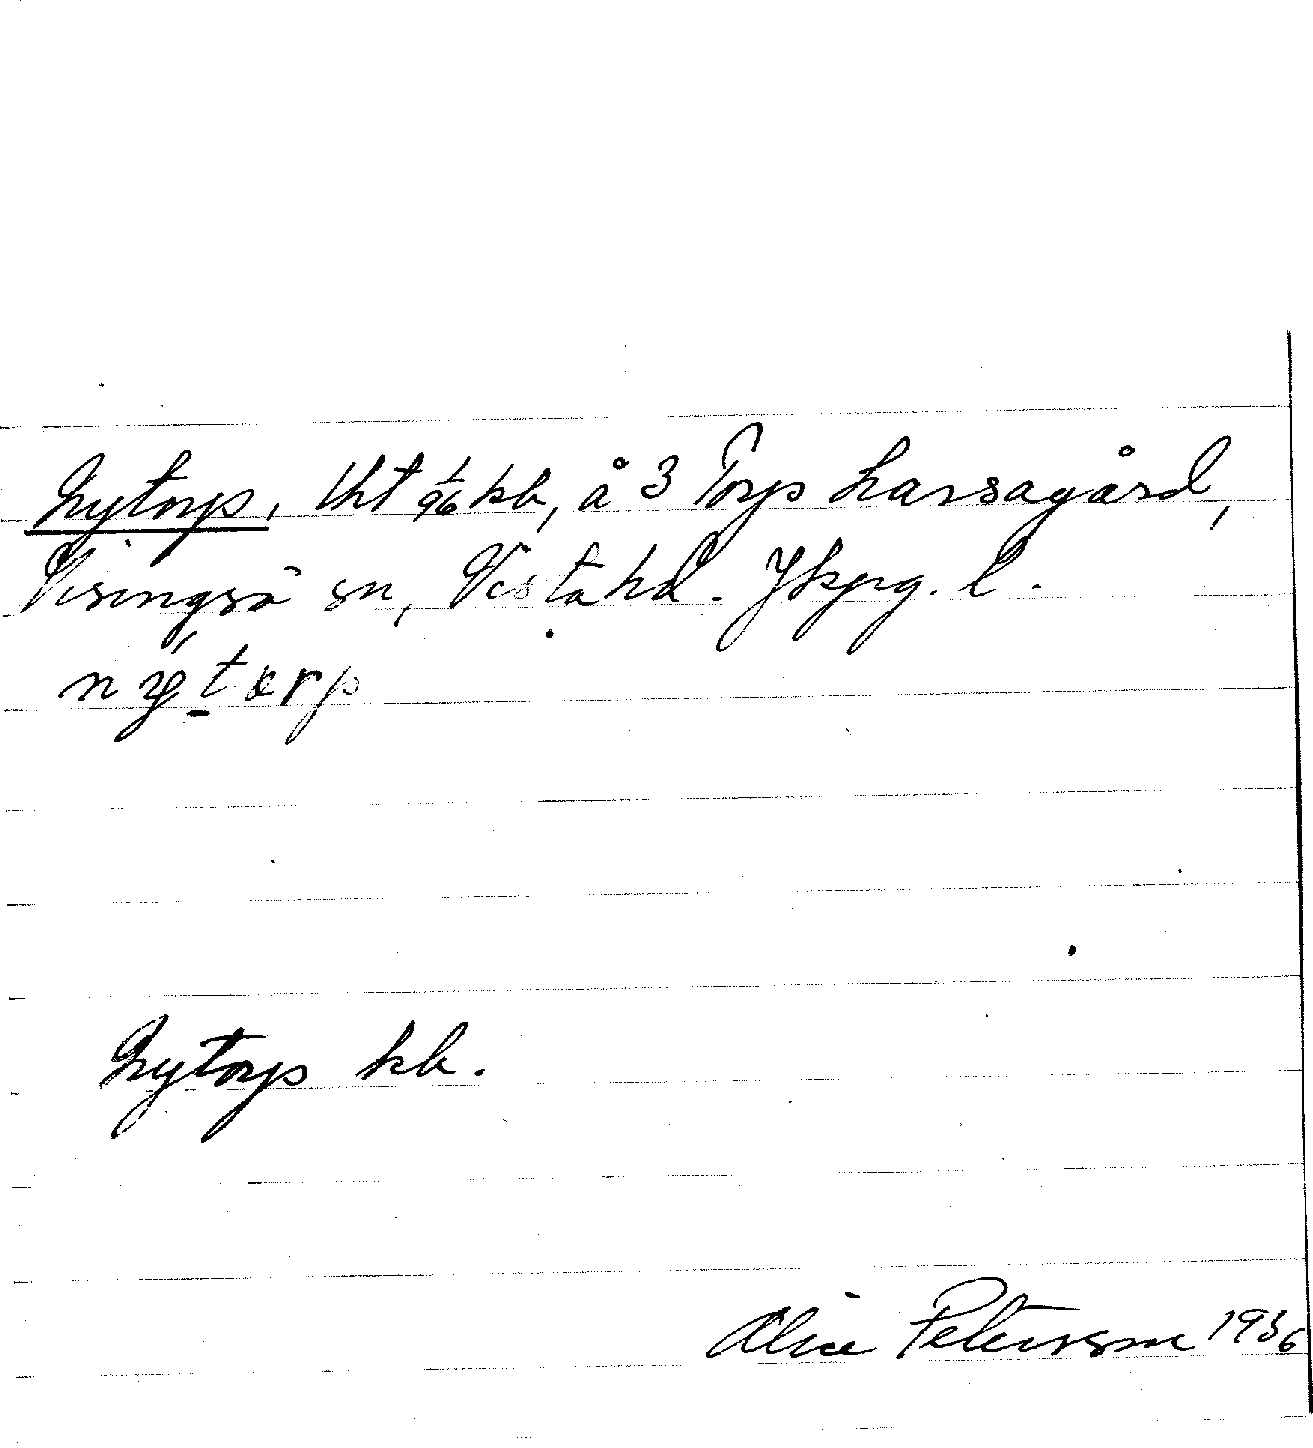 Nytorp, lht 1/96 kb, å 3 Torp Larsagård,
Visingsö sn, Vista hd. Jkpg. l.
nytorp
Nytorp kb.
Alice Petersson 1936